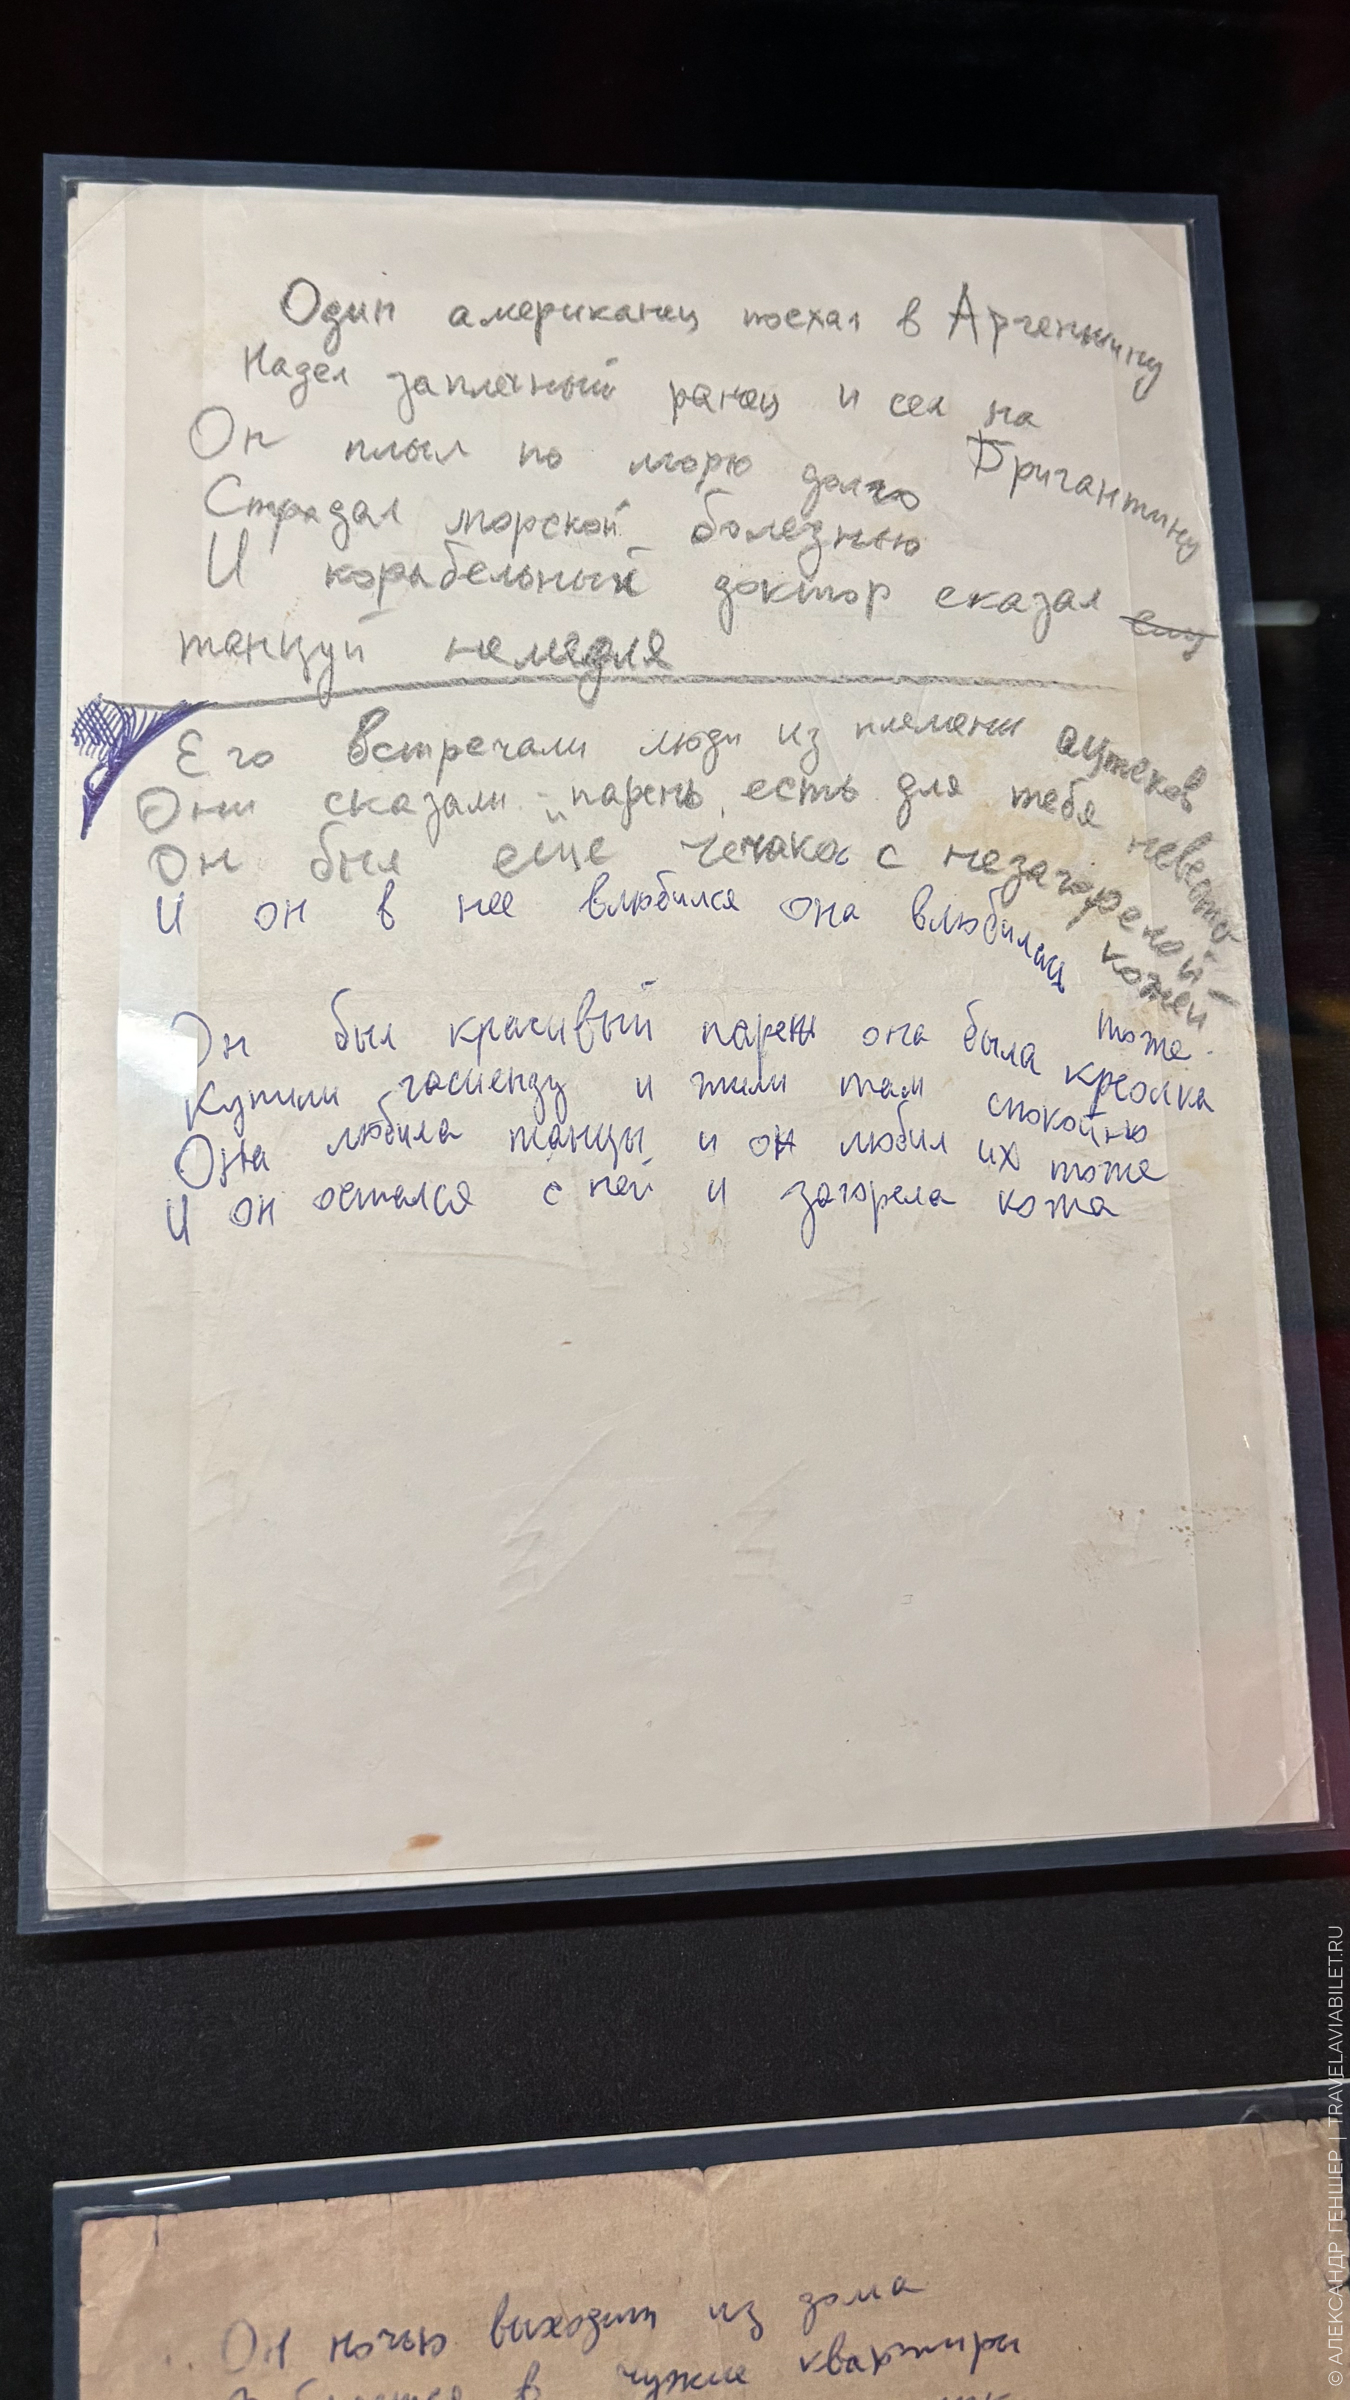 Один американец поехал в Аргентину
Надел заплечный ранец и сел на Бригантину
Он плыл по морю долго
Страдал морской болезнью
И корабельный доктор сказал ему
танцуй немедля
Его встречали люди из племени ацтеков
Они сказали - парень, есть для тебя невеста
Он был еще чечако с незагорелой кожей
И он в нее влюбился она влюбилась тоже.
Он был красивый парень она была креолка
Купили гасиенду и жили там спокойно
Она любила танцы и он любил их тоже
И он остался с ней и загорела кожа
Он ночью выходит из дома
в чужие квартиры
© АЛЕКСАНДР ГЕНШЕР | TRAVELAVIABILET.RU